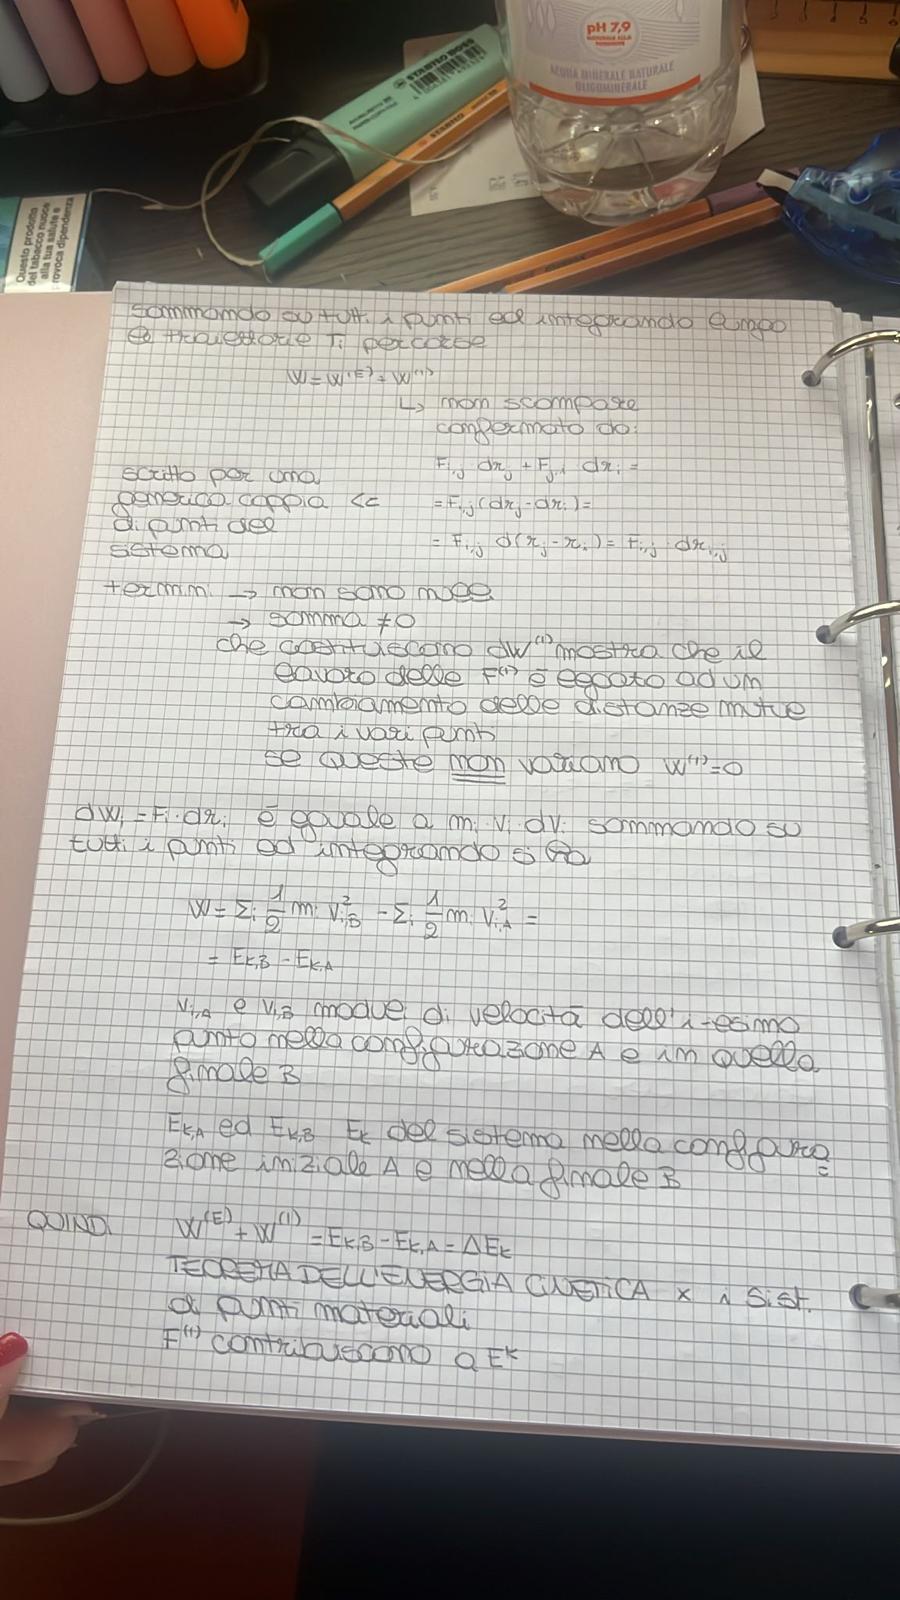 pH 7,9
ACQUA MINERALE NATURALE
OLIGOMINERALE
STABILO BOSS
STABILO
Questo prodotto
del tabacco nuoce
alla tua salute e
provoca dipendenza
sommando su tutti i punti ed integrando lungo
le traiettorie Ti percorse
W = W(E) + W(I)
↳ non scompare
confermato da:
Fi,j drj + Fj,i dri =
scritto per una
generica coppia <<
= Fi,j (drj - dri) =
di punti del
sistema
= Fi,j d(rj - ri) = Fi,j · dri,j
termini → non sono nulle
→ somma ≠ 0
che costituiscono dW(I) mostra che il
lavoro delle F(I) è legato ad un
cambiamento delle distanze mutue
tra i vari punti
se queste non variano W(I) = 0
dWi = Fi · dri è eguale a mi vi dvi sommando su
tutti i punti ed integrando si ha
W = Σi 1/2 mi v²i,B - Σi 1/2 mi v²i,A =
= Ek,B - Ek,A
vi,A e vi,B moduli di velocità dell'i-esimo
punto nella configurazione A e in quella
finale B
Ek,A ed Ek,B Ek del sistema nella configura=
zione iniziale A e nella finale B
QUINDI W(E) + W(I) = Ek,B - Ek,A = ΔEk
TEOREMA DELL'ENERGIA CINETICA x i sist.
di punti materiali
F(I) contribuiscono a EK